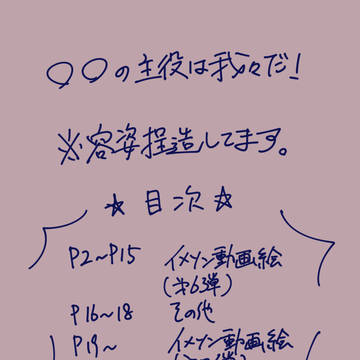 ○○の主役は我々だ!
※容姿捏造してます。
☆目次☆
P2~P15 イメソン動画絵
(第6弾)
P16~18 その他
P19~ イメソン動画絵